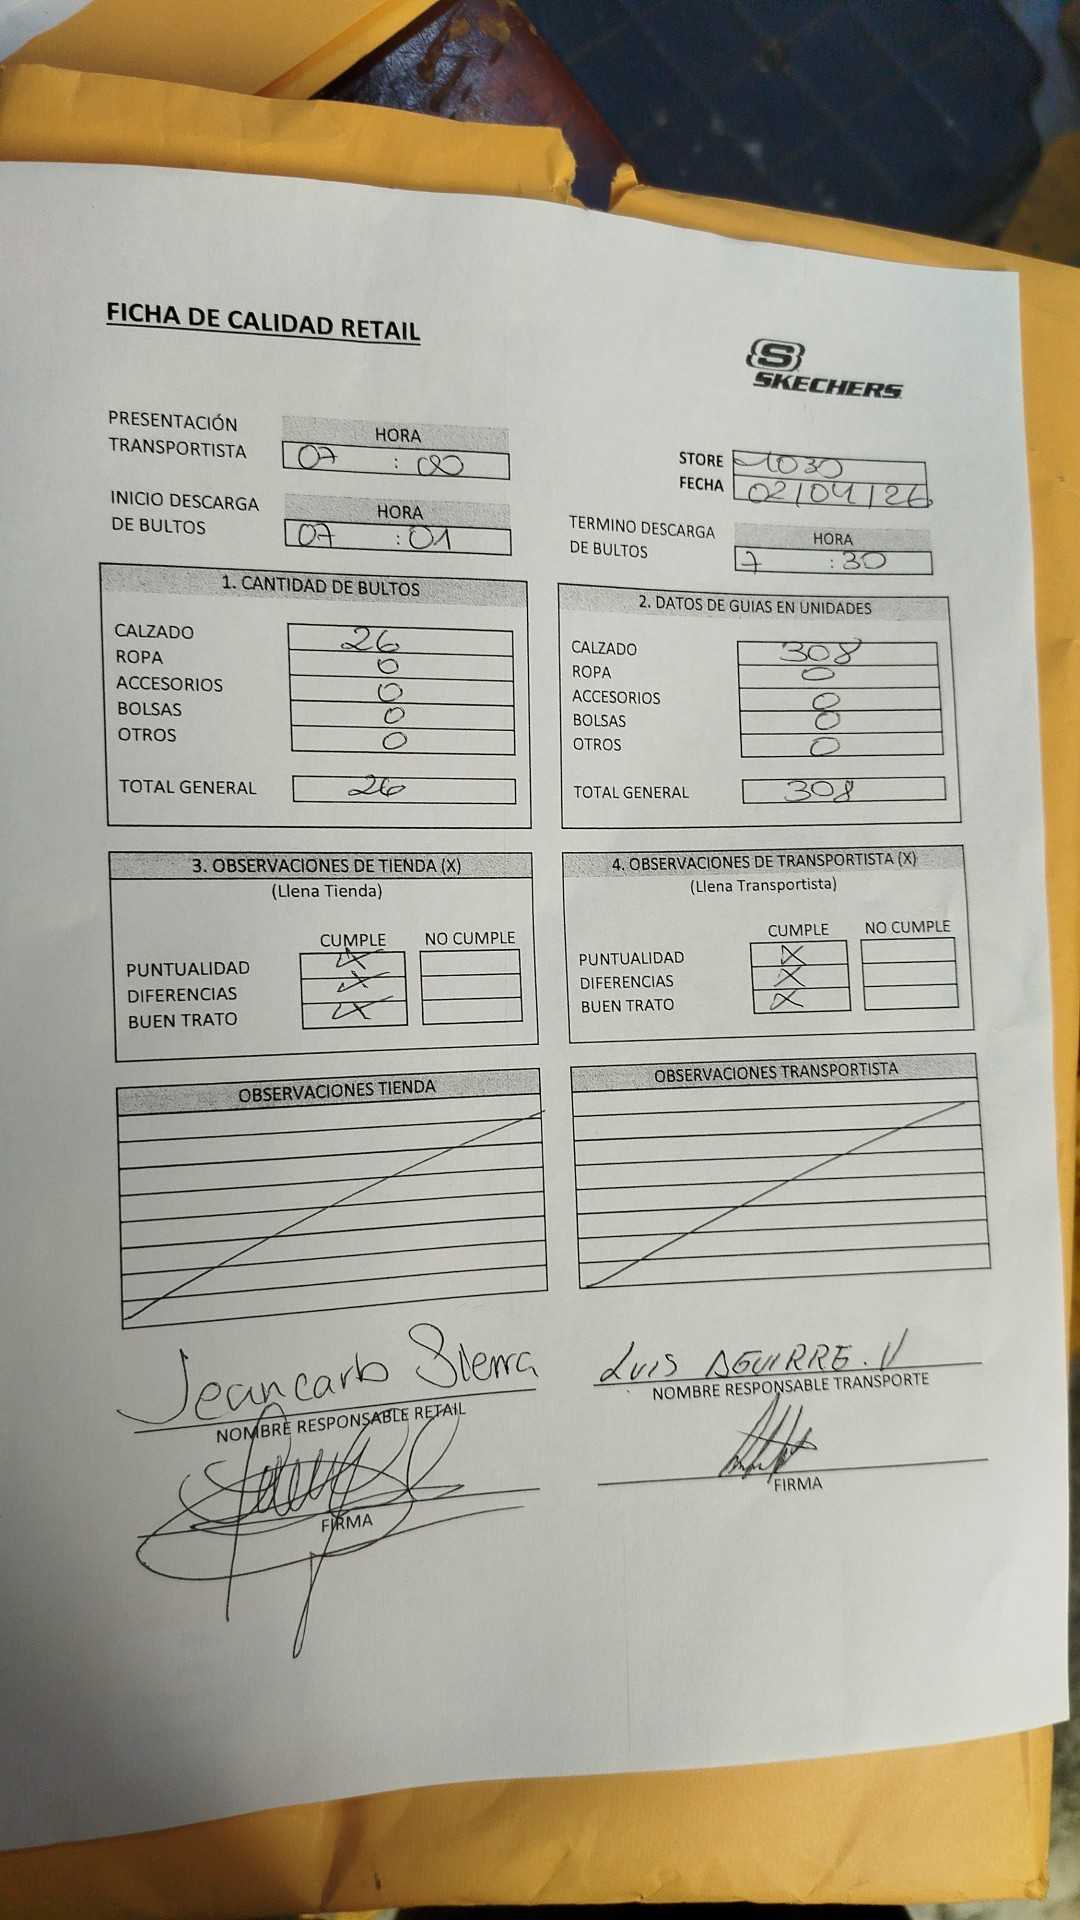 FICHA DE CALIDAD RETAIL
SKECHERS
PRESENTACIÓN TRANSPORTISTA
HORA
07 : 00
STORE 1030
FECHA 02/04/26
INICIO DESCARGA DE BULTOS
HORA
07 : 01
TERMINO DESCARGA DE BULTOS
HORA
7 : 30
1. CANTIDAD DE BULTOS
CALZADO 26
ROPA 0
ACCESORIOS 0
BOLSAS 0
OTROS 0
TOTAL GENERAL 26
2. DATOS DE GUIAS EN UNIDADES
CALZADO 308
ROPA 0
ACCESORIOS 0
BOLSAS 0
OTROS 0
TOTAL GENERAL 308
3. OBSERVACIONES DE TIENDA (X)
(Llena Tienda)
CUMPLE NO CUMPLE
PUNTUALIDAD X
DIFERENCIAS X
BUEN TRATO X
4. OBSERVACIONES DE TRANSPORTISTA (X)
(Llena Transportista)
CUMPLE NO CUMPLE
PUNTUALIDAD X
DIFERENCIAS X
BUEN TRATO X
OBSERVACIONES TIENDA
OBSERVACIONES TRANSPORTISTA
Jeancarlo Sierra
NOMBRE RESPONSABLE RETAIL
FIRMA
LUIS AGUIRRE. V
NOMBRE RESPONSABLE TRANSPORTE
FIRMA